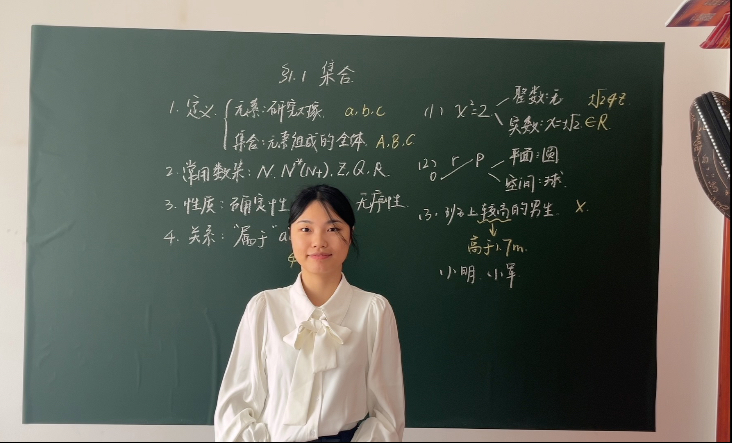 §1.1 集合
1. 定义 { 元素:研究对象. a,b,c
集合:元素组成的全体. A,B,C
2. 常用数集: N, N*(N+), Z, Q, R.
3. 性质: 确定性 无序性.
4. 关系: "属于" a
(1) x²=2 整数:无 ±√2∉Z
实数: x=±√2∈R.
(2) r P 平面:圆
O 空间:球.
(3) 班上较高的男生 ×
高于1.7m.
小明 小军